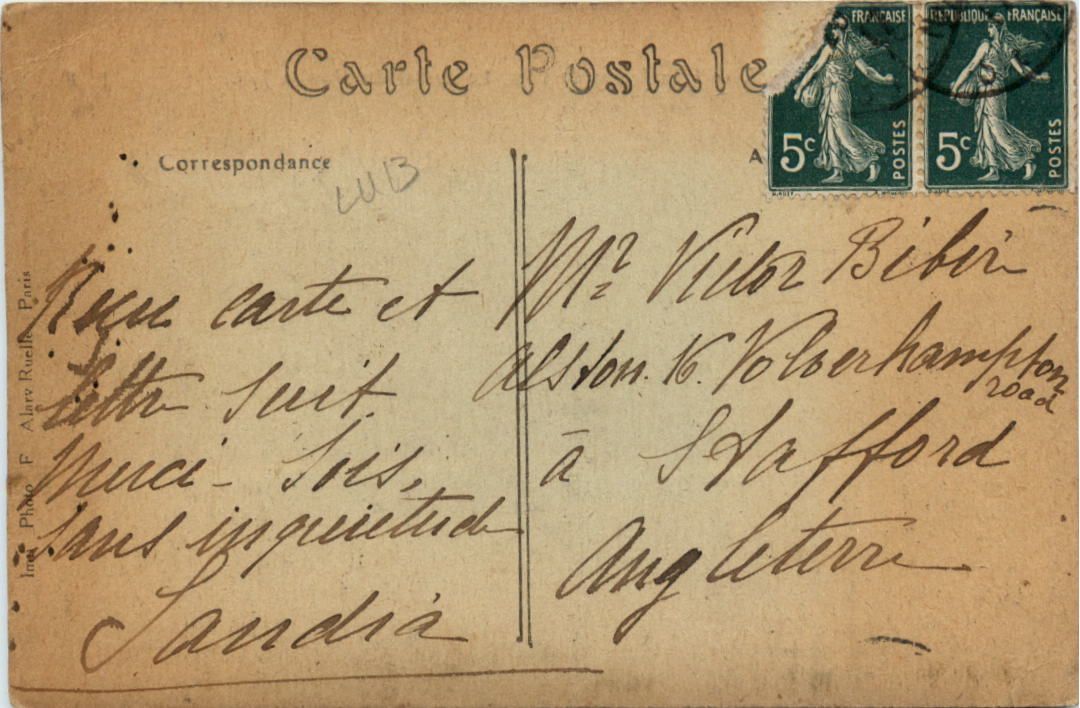 Carte Postale
RÉPUBLIQUE FRANÇAISE
FRANÇAISE
5c POSTES
5c POSTES
Correspondance
A
Imp. Photo F Alary Ruelle Paris
Reçu carte et
lettre suit
Merci – Sois,
sans inquiétude
Sandia
Mr Victor Bibin
Alston. 16. Volverhampton
road
à Stafford
Angleterre